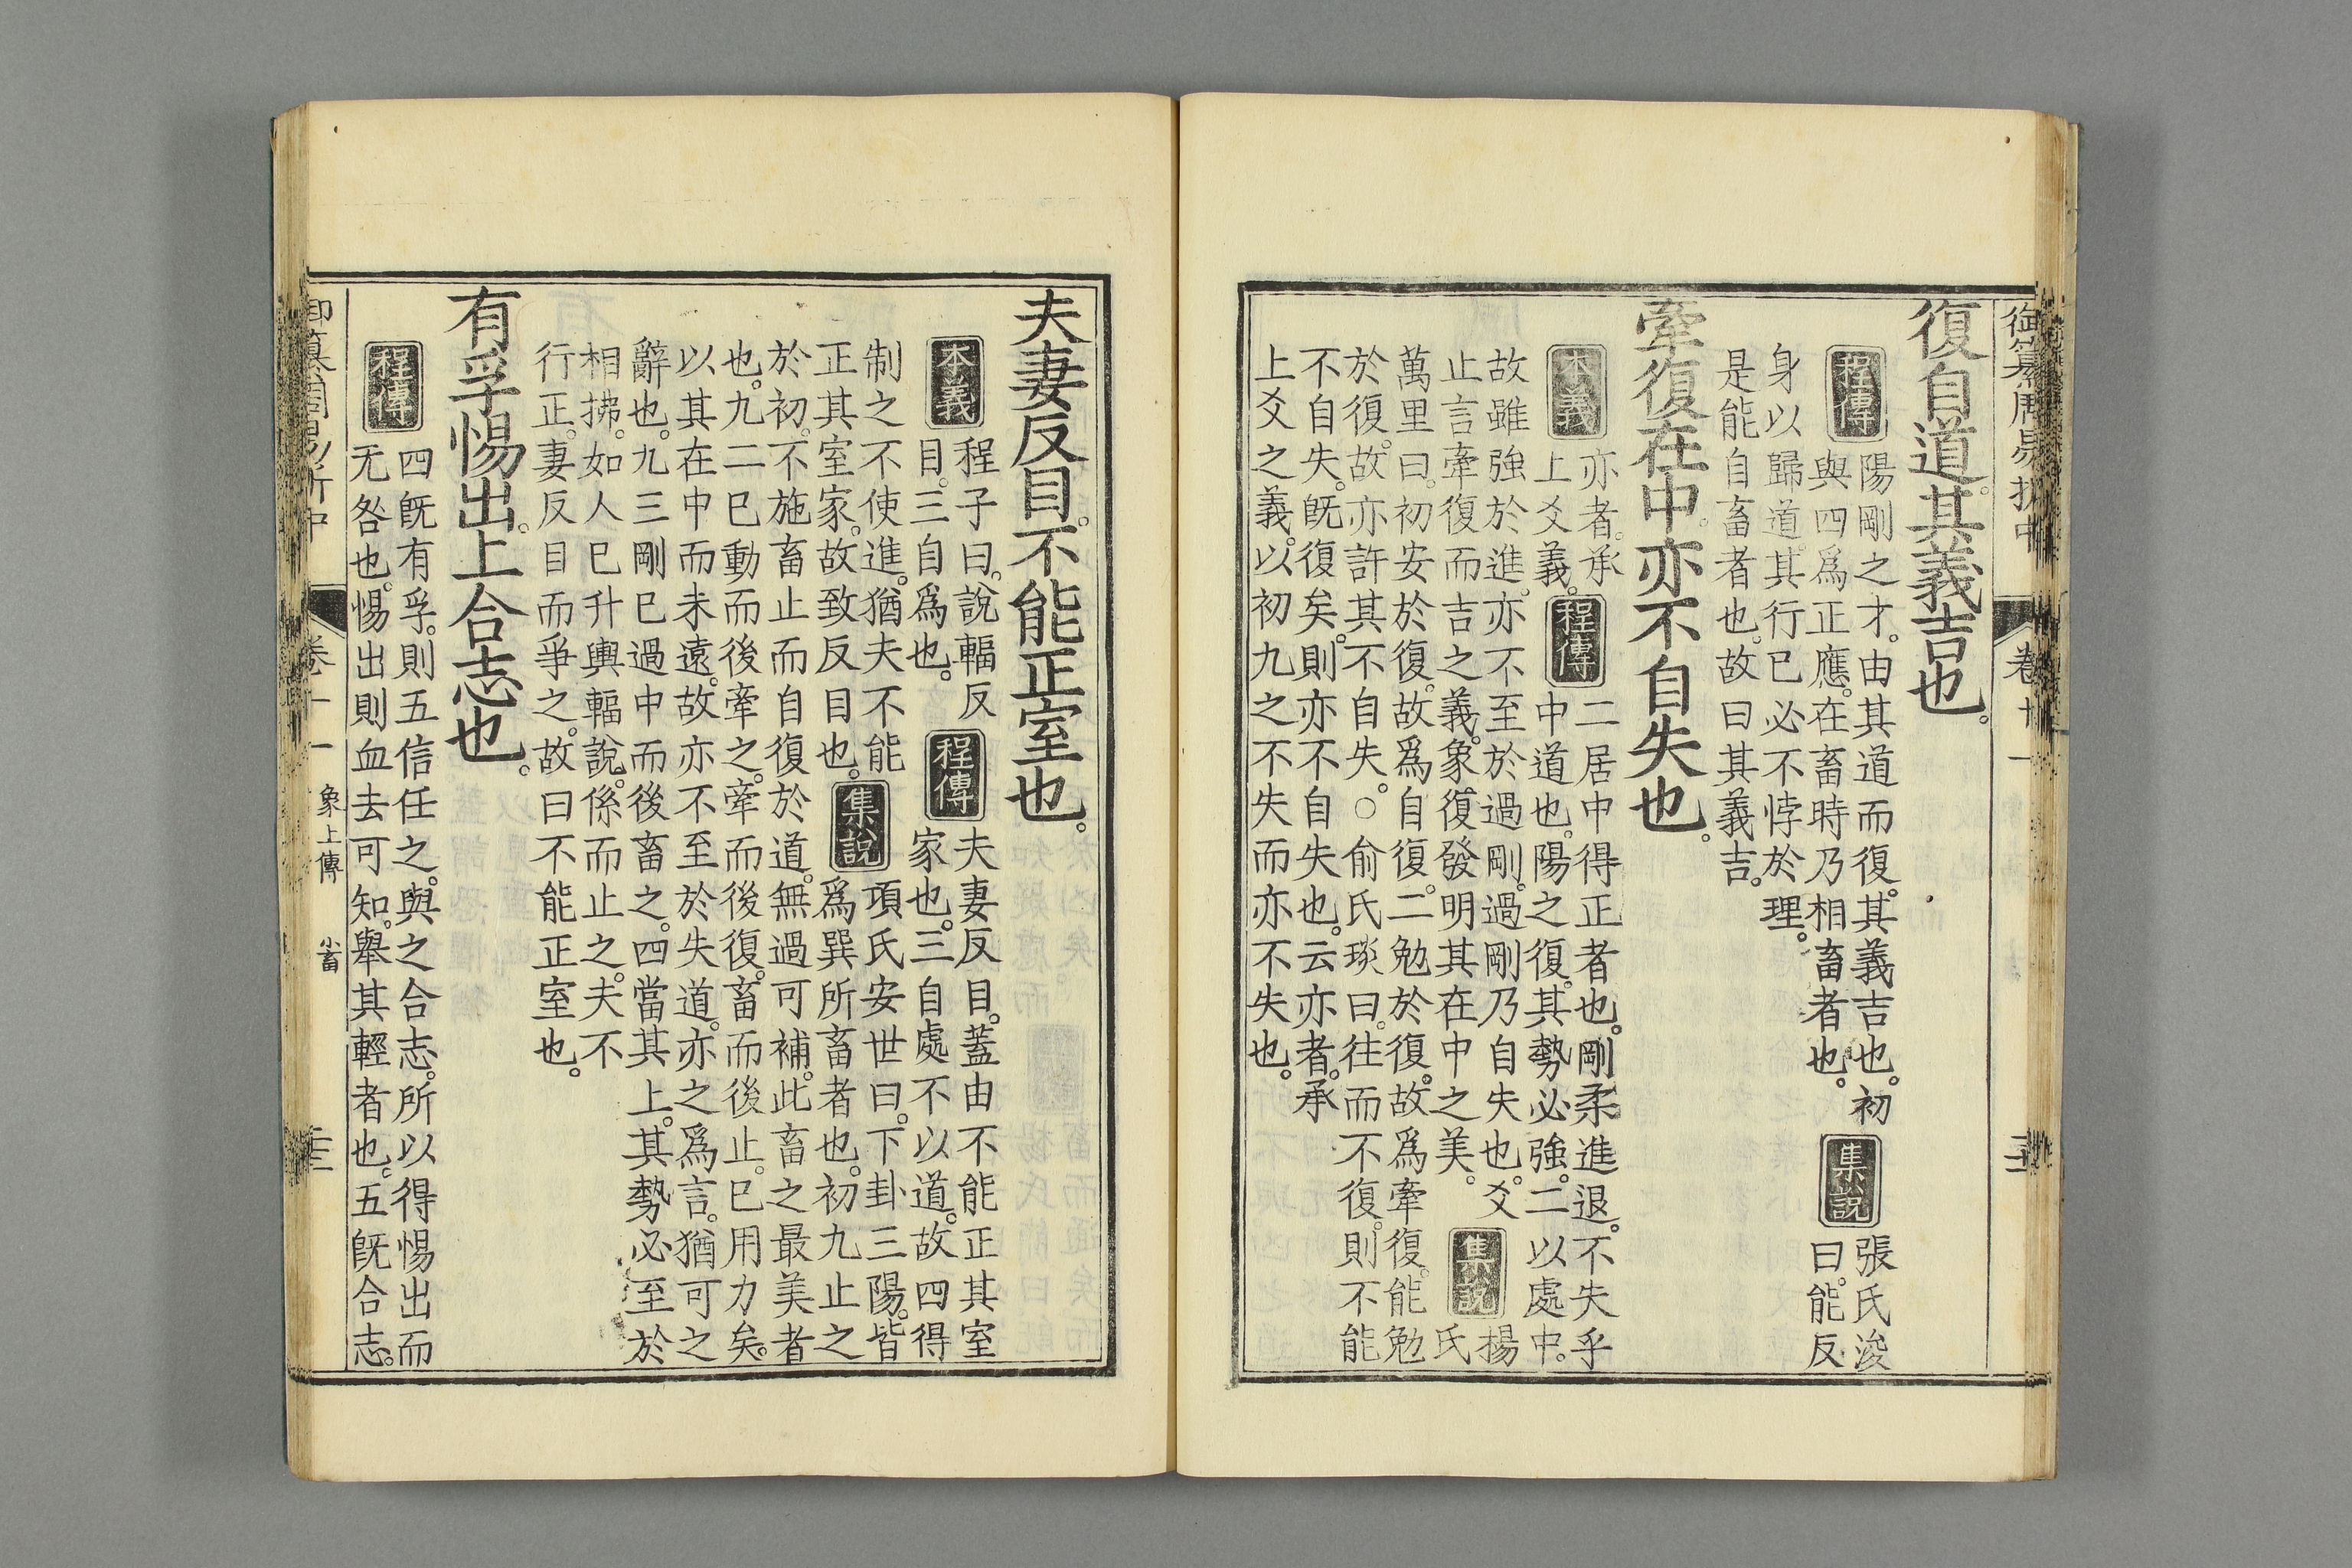 御纂周易折中 卷十一
復自道。其義吉也。
程傳
陽剛之才。由其道而復。其義吉也。初
與四爲正應。在畜時乃相畜者也。
集說
張氏浚
曰。能反
身以歸道。其行已必不悖於理。
是能自畜者也。故曰其義吉。
牽復在中。亦不自失也。
本義
亦者。承
上爻義。
程傳
二居中得正者也。剛柔進退。不失乎
中道也。陽之復。其勢必強。二以處中。
故雖強於進。亦不至於過剛。過剛乃自失也。爻
止言牽復而吉之義。象復發明其在中之美。
集說
楊
氏
萬里曰。初安於復。故爲自復。二勉於復。故爲牽復。能勉
於復。故亦許其不自失。○俞氏琰曰。往而不復。則不能
不自失。旣復矣。則亦不自失也。云亦者。承
上爻之義。以初九之不失而亦不失也。
夫妻反目。不能正室也。
本義
程子曰。說輻反
目。三自爲也。
程傳
夫妻反目。蓋由不能正其室
家也。三自處不以道。故四得
制之不使進。猶夫不能
正其室家。故致反目也。
集說
項氏安世曰。下卦三陽。皆
爲巽所畜者也。初九止之
於初。不施畜止而自復於道。無過可補。此畜之最美者
也。九二已動而後牽之。牽而後復。畜而後止。已用力矣。
以其在中而未遠。故亦不至於失道。亦之爲言。猶可之
辭也。九三剛已過中而後畜之。四當其上。其勢必至於
相拂。如人已升輿輻說。係而止之。夫不
行正。妻反目而爭之。故曰不能正室也。
有孚惕出。上合志也。
程傳
四旣有孚。則五信任之。與之合志。所以得惕出而
无咎也。惕出則血去可知。舉其輕者也。五旣合志。
象上傳 小畜